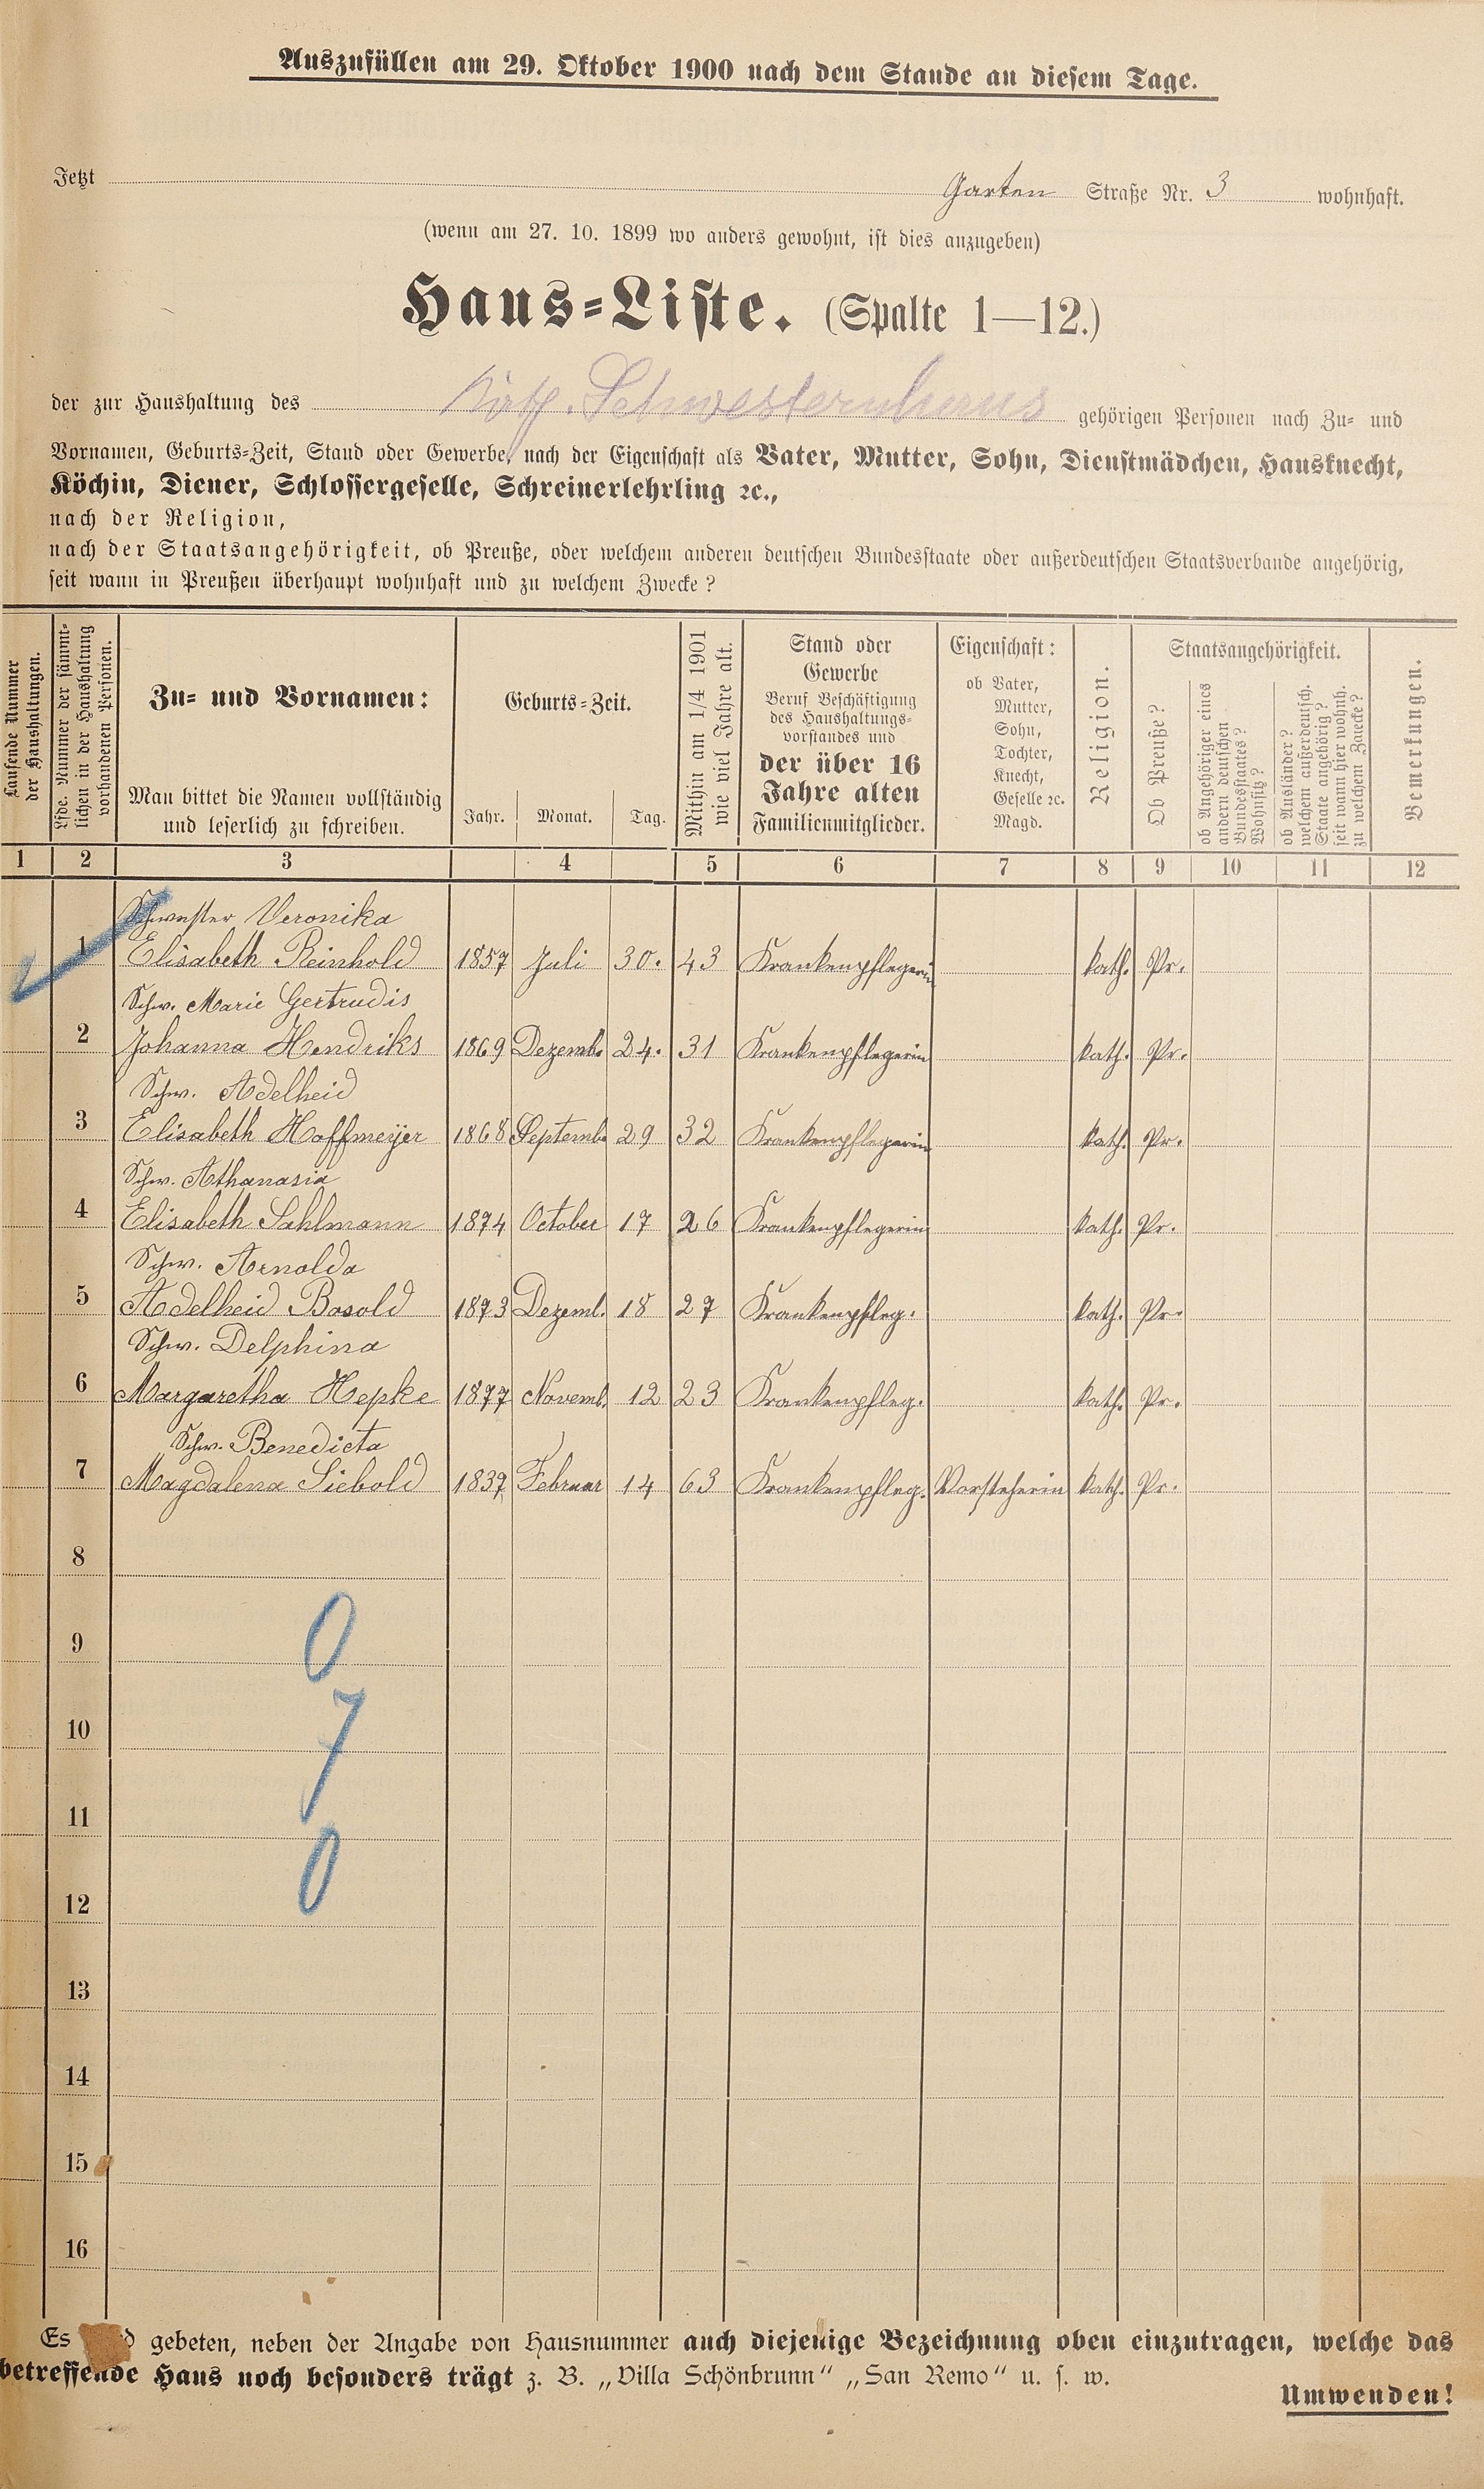 Auszufüllen am 29. Oktober 1900 nach dem Stande an diesem Tage.
Jetzt Garten Straße Nr. 3 wohnhaft.
(wenn am 27. 10. 1899 wo anders gewohnt, ist dies anzugeben)
Haus-Liste. (Spalte 1—12.)
der zur Haushaltung des Kath. Schwesternhaus gehörigen Personen nach Zu- und
Vornamen, Geburts-Zeit, Stand oder Gewerbe, nach der Eigenschaft als Vater, Mutter, Sohn, Dienstmädchen, Hausknecht,
Köchin, Diener, Schlossergeselle, Schreinerlehrling ꝛc.,
nach der Religion,
nach der Staatsangehörigkeit, ob Preuße, oder welchem anderen deutschen Bundesstaate oder außerdeutschen Staatsverbande angehörig,
seit wann in Preußen überhaupt wohnhaft und zu welchem Zwecke?
Laufende Nummer
der Haushaltungen.
Lfde. Nummer der sämmt-
lichen in der Haushaltung
vorhandenen Personen.
Zu- und Vornamen:
Man bittet die Namen vollständig
und leserlich zu schreiben.
Geburts-Zeit.
Jahr. Monat. Tag.
Mithin am 1/4 1901
wie viel Jahre alt.
Stand oder
Gewerbe
Beruf Beschäftigung
des Haushaltungs-
vorstandes und
der über 16
Jahre alten
Familienmitglieder.
Eigenschaft:
ob Vater,
Mutter,
Sohn,
Tochter,
Knecht,
Geselle ꝛc.
Magd.
Religion.
Staatsangehörigkeit.
Ob Preuße?
ob Angehöriger eines
andern deutschen
Bundesstaates?
Wohnsitz?
ob Ausländer?
welchem außerdeutsch.
Staate angehörig?
seit wann hier wohnh.
zu welchem Zwecke?
Bemerkungen.
1 2 3 4 5 6 7 8 9 10 11 12
Schwester Veronika
1 Elisabeth Reinhold 1857 Juli 30. 43 Krankenpflegerin kath. Pr.
Schw. Marie Gertrudis
2 Johanna Hendriks 1869 Dezemb. 24. 31 Krankenpflegerin kath. Pr.
Schw. Adelheid
3 Elisabeth Hoffmeyer 1868 Septemb. 29 32 Krankenpflegerin kath. Pr.
Schw. Athanasia
4 Elisabeth Sahlmann 1874 October 17 26 Krankenpflegerin kath. Pr.
Schw. Arnolda
5 Adelheid Bosold 1873 Dezemb. 18 27 Krankenpfleg. kath. Pr.
Schw. Delphina
6 Margaretha Hepke 1877 Novemb. 12 23 Krankenpfleg. kath. Pr.
Schw. Benedicta
7 Magdalena Siebold 1837 Februar 14 63 Krankenpfleg. Vorsteherin kath. Pr.
8
9
0
10
7
11
0
12
13
14
15
16
Es gebeten, neben der Angabe von Hausnummer auch diejenige Bezeichnung oben einzutragen, welche das
betreffende Haus noch besonders trägt z. B. „Villa Schönbrunn“ „San Remo“ u. s. w.
Umwenden!